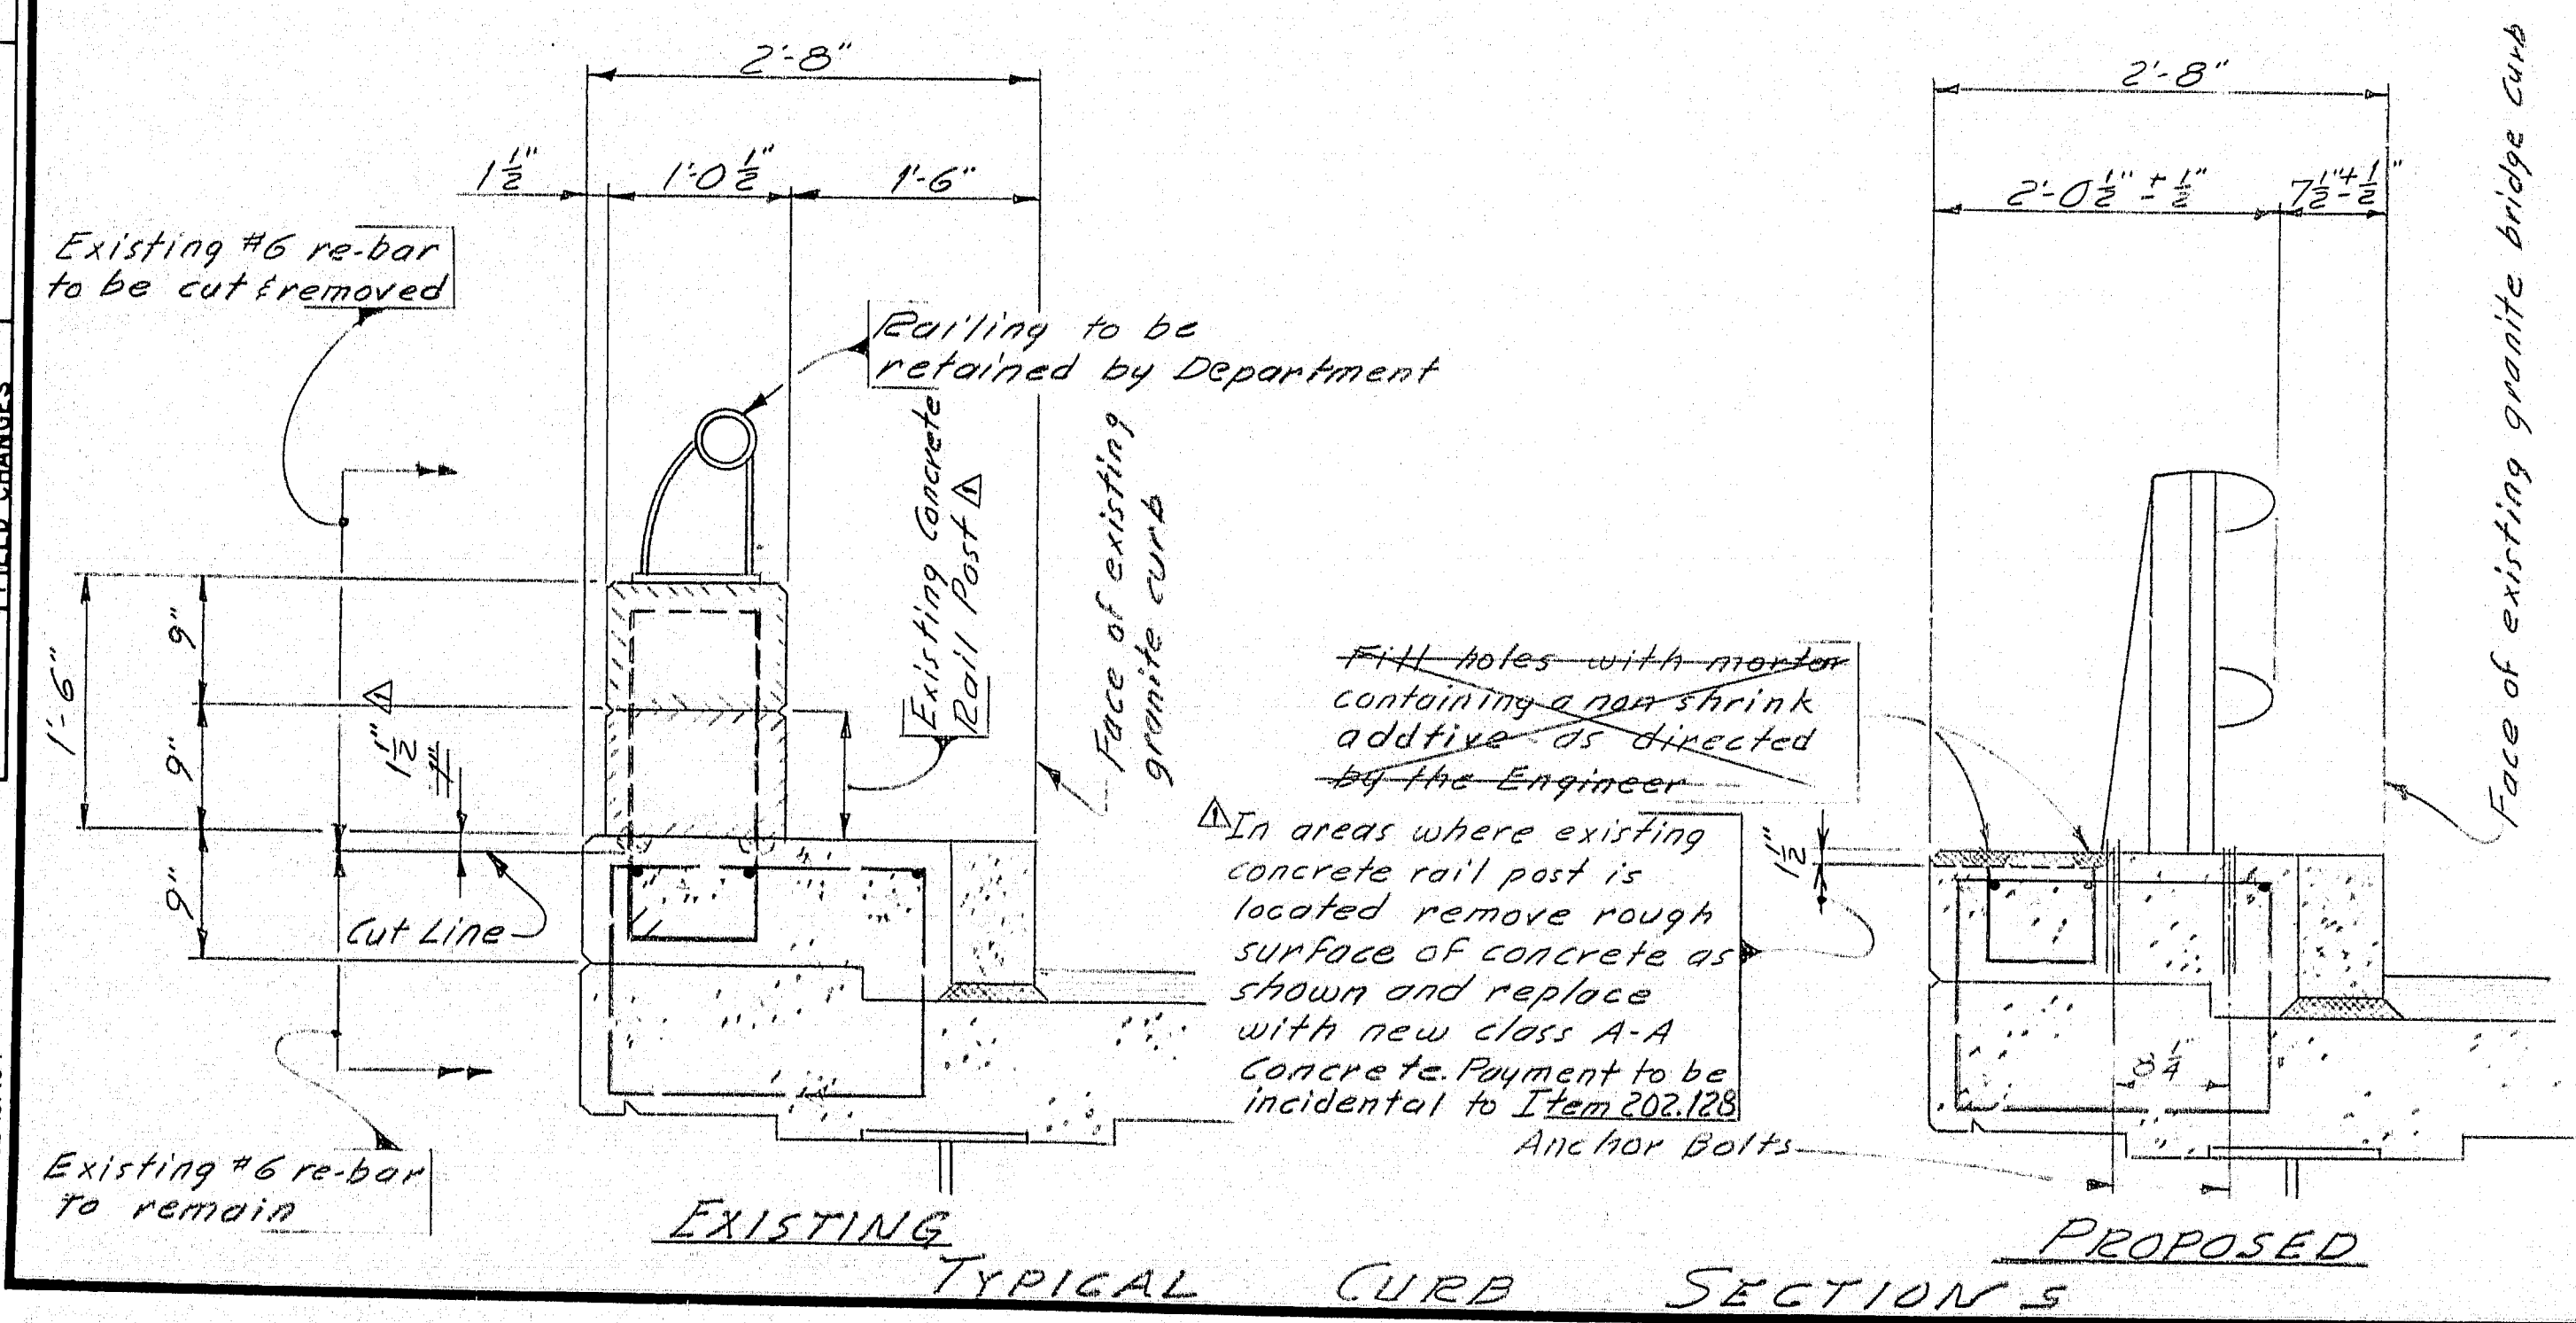 FIELD CHANGES
2'-8"
1 1/2"
1'-0 1/2"
1'-6"
Existing #6 re-bar
to be cut & removed
Railing to be
retained by Department
Existing Concrete
Rail Post 1
Face of existing
granite curb
1'-6"
9"
9"
9"
1 1/2" 1
1"
Cut Line
Existing #6 re-bar
To remain
EXISTING
2'-8"
2'-0 1/2" ± 1/2"
7 1/2" ± 1/2"
Face of existing granite bridge curb
Fill holes with mortar
containing a non shrink
addtive as directed
by the Engineer
1 In areas where existing
concrete rail post is
located remove rough
surface of concrete as
shown and replace
with new class A-A
Concrete. Payment to be
incidental to Item 202.128
1 1/2"
8 1/4"
Anchor Bolts
PROPOSED
TYPICAL CURB SECTIONS